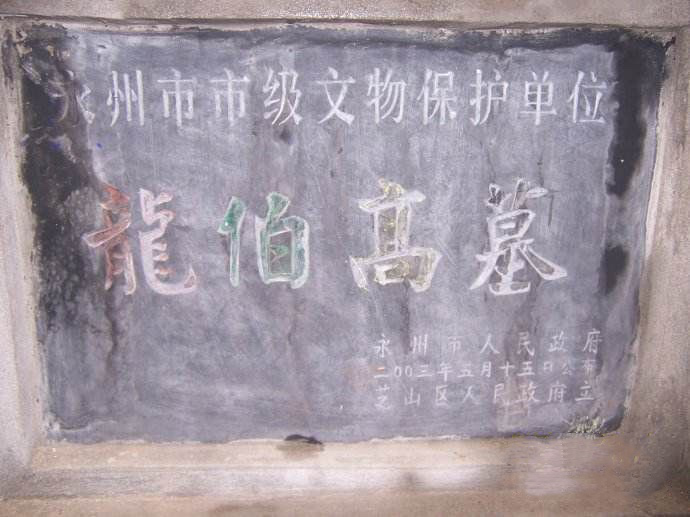 永州市市级文物保护单位
龍伯高墓
永州市人民政府
二00三年五月十五日公布
芝山区人民政府立